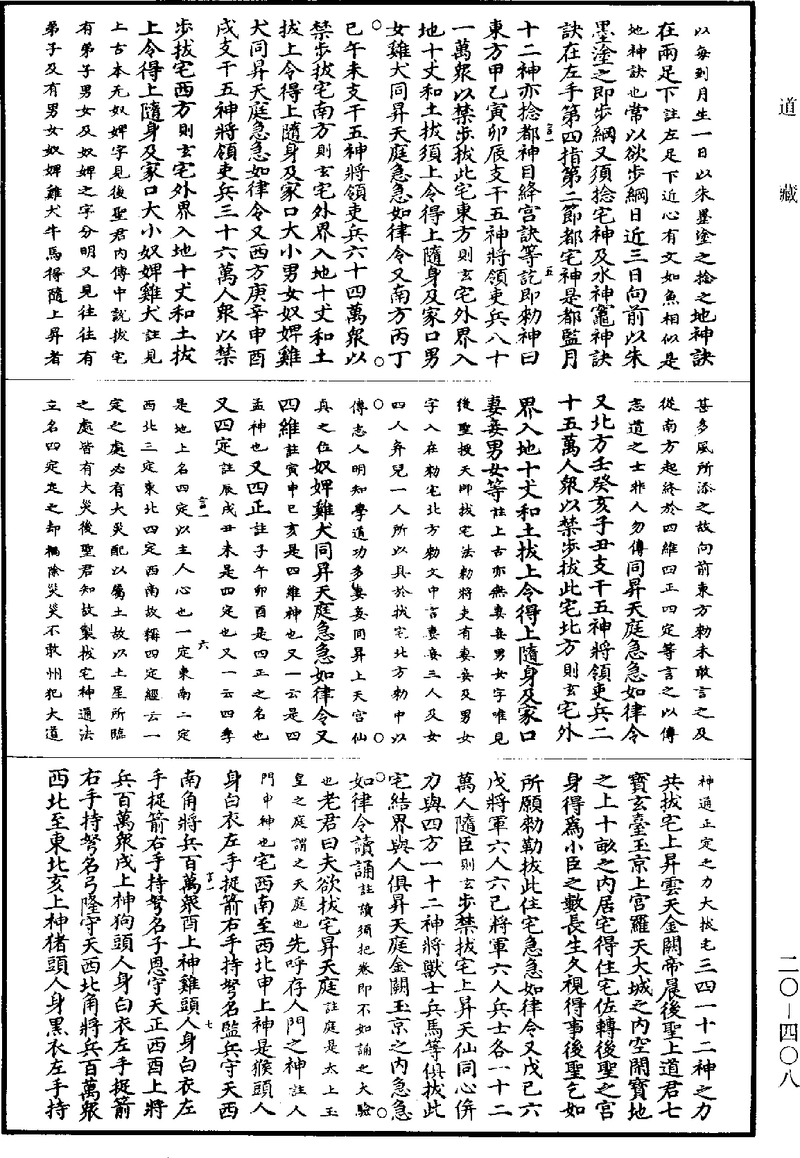 道藏
二〇—四〇八
以每到月生一日以朱墨塗之捻之地神訣
在兩足下註左足下近心有文如魚相似是
地神訣也常以欲步綱日近三日向前以朱
墨塗之即步綱又須捻宅神及水神竈神訣
訣在左手第四指第二節都宅神是都監月
十二神亦捻都神目絳宫訣等訖即勑神曰
東方甲乙寅卯辰支干五神將領吏兵八十
一萬衆以禁步拔此宅東方則玄宅外界入
地十丈和土拔須上令得上隨身及家口男
女雞犬同昇天庭急急如律令又南方丙丁
巳午未支干五神將領吏兵六十四萬衆以
禁步拔宅南方則玄宅外界入地十丈和土
拔上令得上隨身及家口大小男女奴婢雞
犬同昇天庭急急如律令又西方庚辛申酉
戌支干五神將領吏兵三十六萬人衆以禁
步拔宅西方則玄宅外界入地十丈和土拔
上令得上隨身及家口大小奴婢雞犬註見
上古本无奴婢字見後聖君内傳中說拔宅
有弟子男女及奴婢之字分明又見往往有
弟子及有男女奴婢雞犬牛馬得隨上昇者
甚多風所添之故向前東方勑未敢言之及
從南方起終於四維四正四定等言之以傳
志道之士非人勿傳同昇天庭急急如律令
又北方壬癸亥子丑支干五神將領吏兵二
十五萬人衆以禁步拔此宅北方則玄宅外
界入地十丈和土拔上令得上隨身及家口
妻妾男女等註上古亦無妻妾男女字唯見
後聖授天師拔宅法勑將吏有妻妾及男女
字入在勑宅北方勑文中言妻妾三人及女
四人弃兒一人所以具於拔宅北方勑中以
傳志人明知學道功多妻妾同昇上天宫仙
真之位奴婢雞犬同昇天庭急急如律令又
四維註寅申巳亥是四維神也又一云是四
孟神也又四正註子午卯酉是四正之名也
又四定註辰戌丑未是四定也又一云四季
是地上名四定以主人心也一定東南二定
西北三定東北四定西南故稱四定經云一
定之處必有大災配以屬土故以土星所臨
之處皆有大災後聖君知故製拔宅神通法
立名四定定之却禍除災災不敢州犯大道
神通正定之力大拔宅三四一十二神之力
共拔宅上昇雲天金闕帝晨後聖上道君七
寶玄臺玉京上宫羅天大城之内空閑寶地
之上十畝之内居宅得住宅佐轉後聖之宫
身得爲小臣之數長生久視得事後聖乞如
所願勑勒拔此住宅急急如律令又戊己六
戊將軍六人六己將軍六人兵士各一十二
萬人隨臣則玄步禁拔宅上昇天仙同心併
力與四方一十二神將獸士兵馬等俱拔此
宅結界與人俱昇天庭金闕玉京之内急急
如律令讀誦註讀須把卷即不如誦之大驗
也老君曰夫欲拔宅昇天庭註庭是太上玉
皇之庭謂之天庭也先呼存人門之神註人
門申神也宅西南至西北申上神是猴頭人
身白衣左手捉箭右手持弩名監兵守天西
南角將兵百萬衆酉上神雞頭人身白衣左
手捉箭右手持弩名子恩守天正西酉上將
兵百萬衆戌上神狗頭人身白衣左手捉箭
右手持弩名弓隆守天西北角將兵百萬衆
西北至東北亥上神猪頭人身黑衣左手持